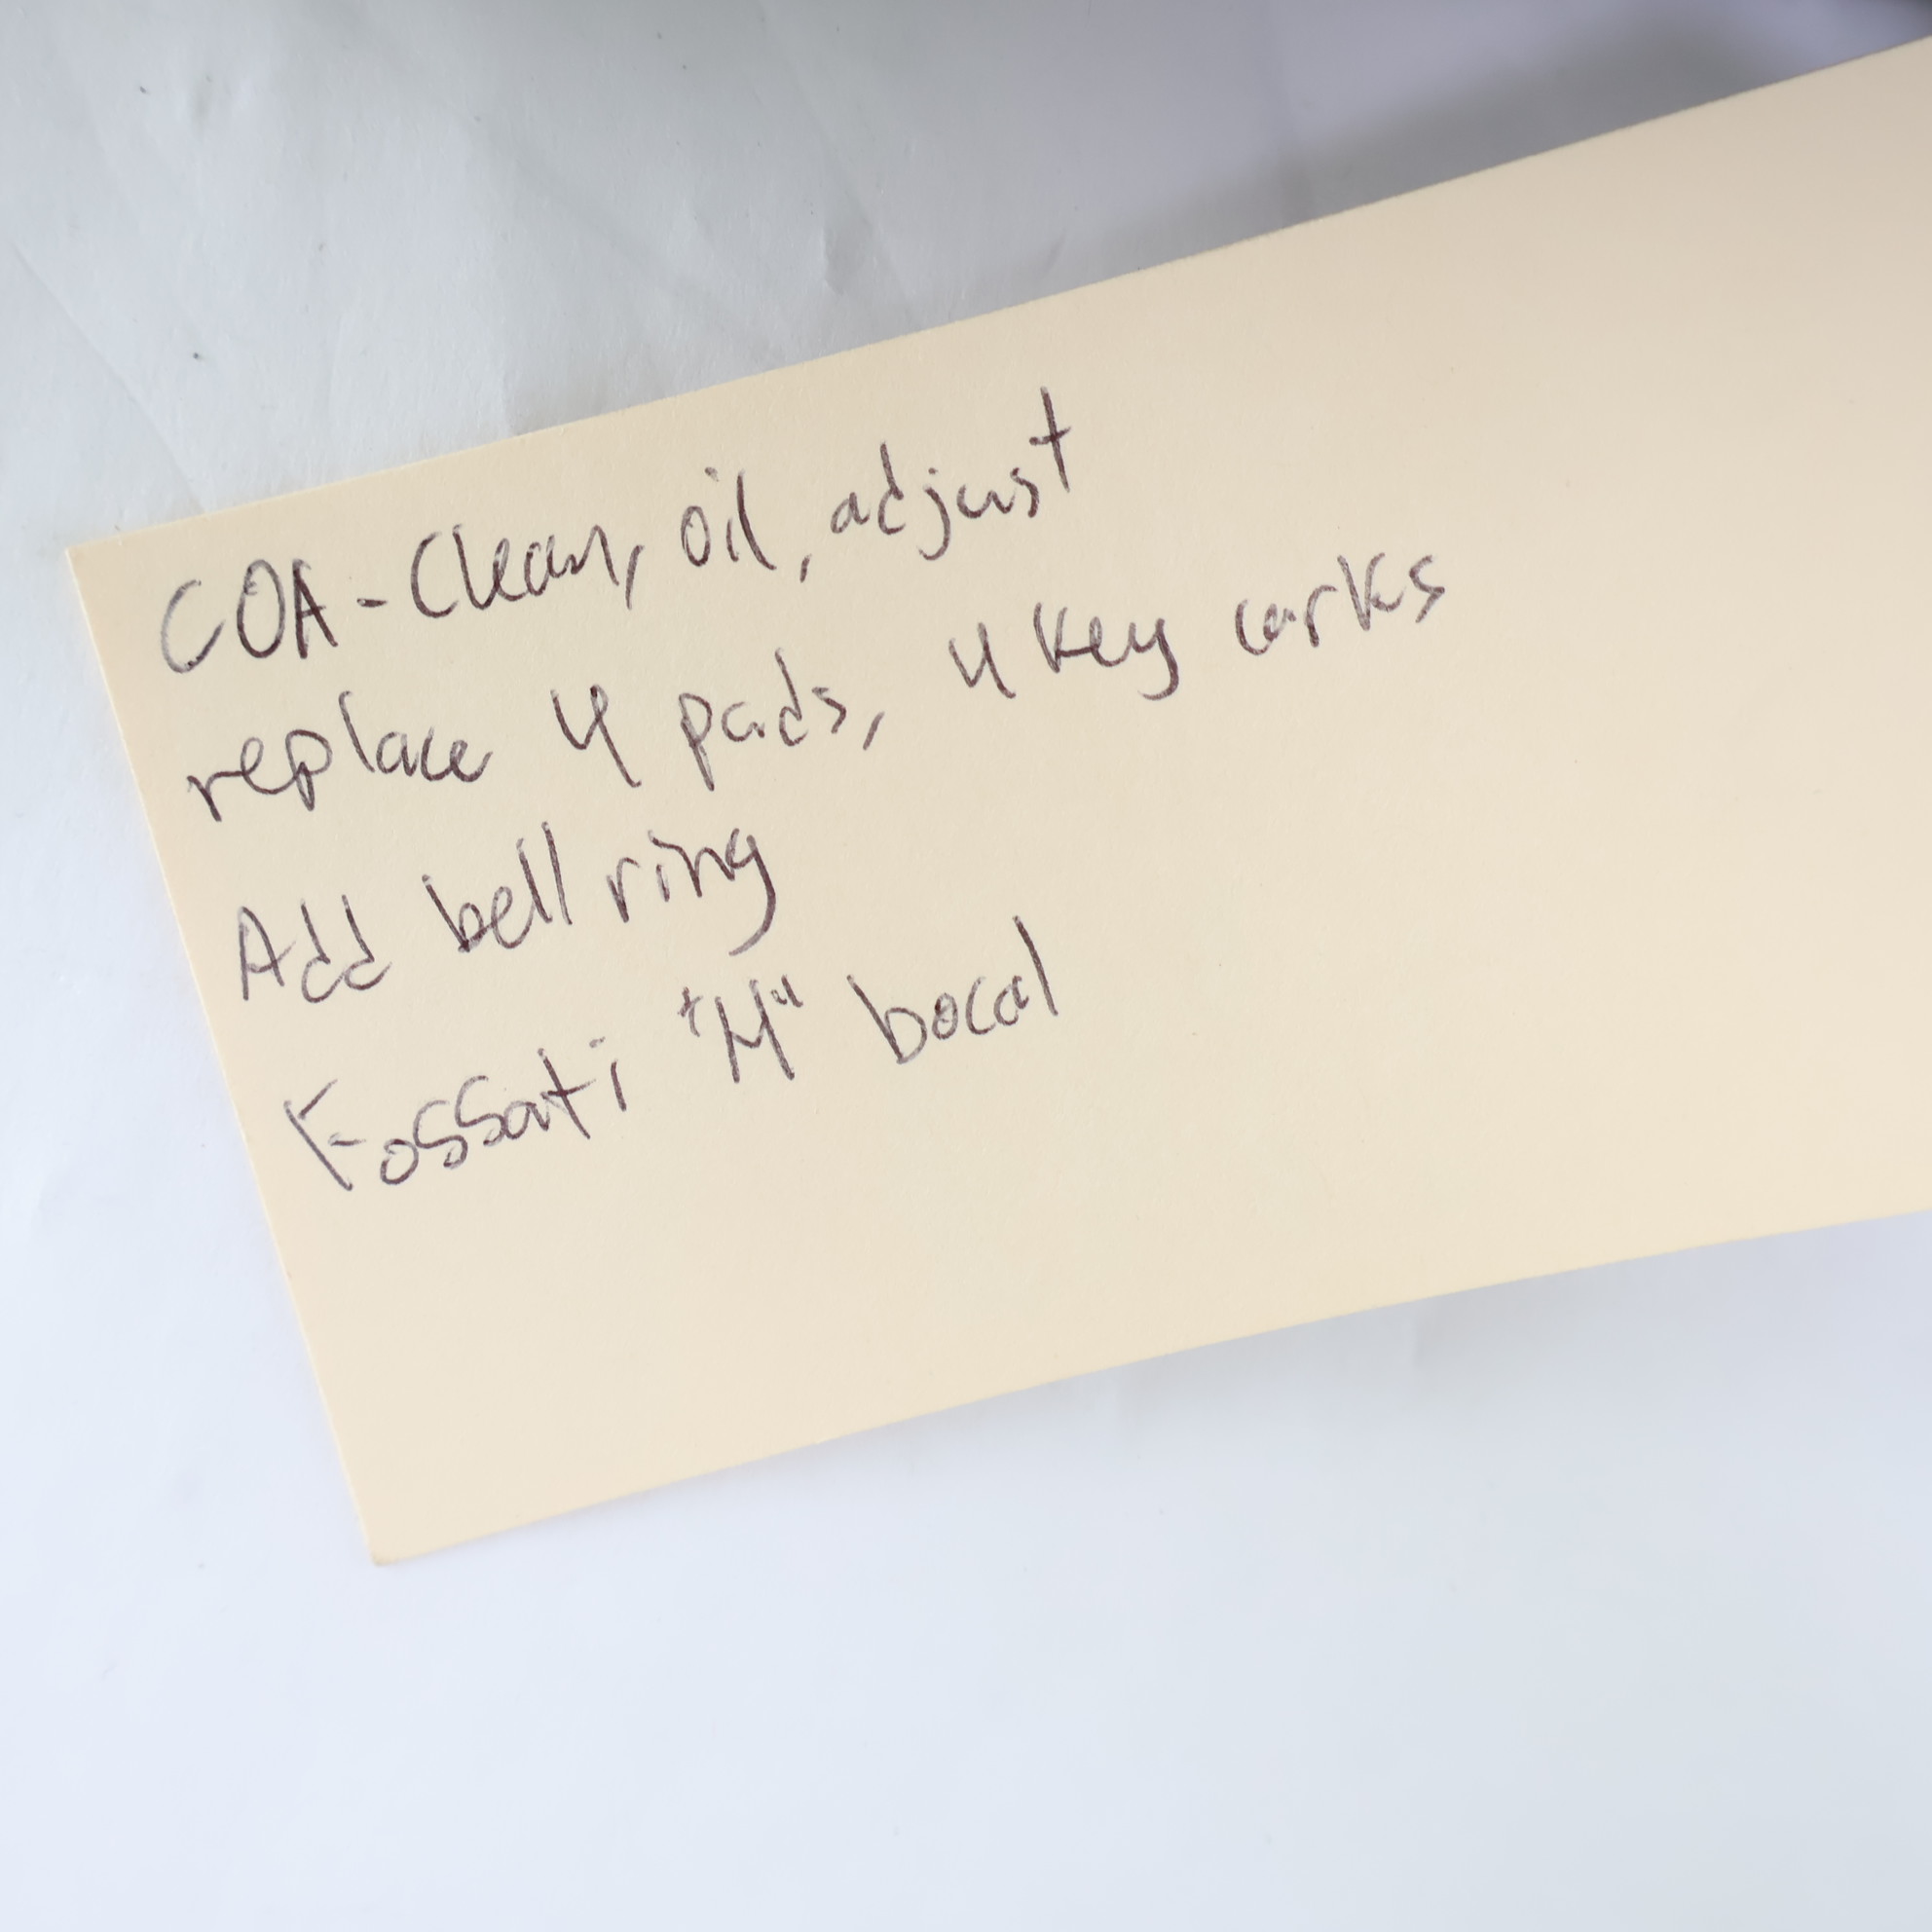 COA - Clean, oil, adjust
replace 4 pads, 4 key corks
Add bell ring
Fossati "M" bocal